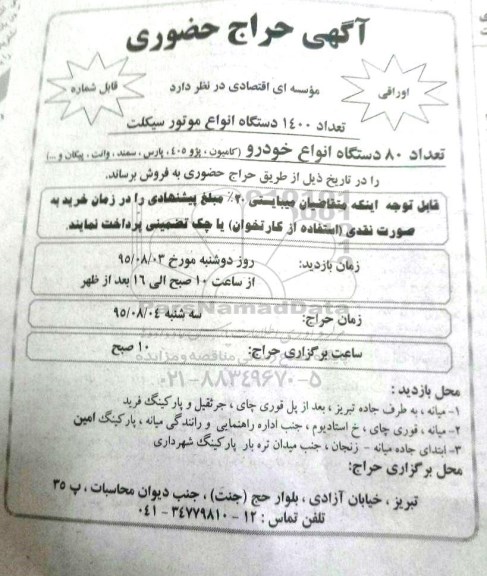 آگهی حراج حضوری
اوراقی
مؤسسه ای اقتصادی در نظر دارد
قابل شماره
تعداد ۱۴۰۰ دستگاه انواع موتور سیکلت
تعداد ۸۰ دستگاه انواع خودرو (کامیون ، پژو ۴۰۵ ، پارس ، سمند ، وانت ، پیکان و ...)
را در تاریخ ذیل از طریق حراج حضوری به فروش برساند.
قابل توجه اینکه متقاضیان میبایستی ۲۰٪ مبلغ پیشنهادی را در زمان خرید به
صورت نقدی (استفاده از کارتخوان) یا چک تضمینی پرداخت نمایند.
زمان بازدید: روز دوشنبه مورخ ۹۵/۰۸/۰۳
از ساعت ۱۰ صبح الی ۱۶ بعد از ظهر
زمان حراج: سه شنبه ۹۵/۰۸/۰۴
ParsNamadData
ساعت برگزاری حراج: ۱۰ صبح
مناقصه و مزایده
۰۲۱-۸۸۳۴۹۶۷۰-۵
محل بازدید :
۱- میانه ، به طرف جاده تبریز ، بعد از پل قوری چای ، جرثقیل و پارکینگ فرید
۲- میانه ، قوری چای ، خ استادیوم ، جنب اداره راهنمایی و رانندگی میانه ، پارکینگ امین
۳- ابتدای جاده میانه - زنجان ، جنب میدان تره بار پارکینگ شهرداری
محل برگزاری حراج:
تبریز ، خیابان آزادی ، بلوار حج (جنت) ، جنب دیوان محاسبات ، پ ۳۵
تلفن تماس : ۱۲ - ۳۴۷۷۹۸۱۰ - ۰۴۱